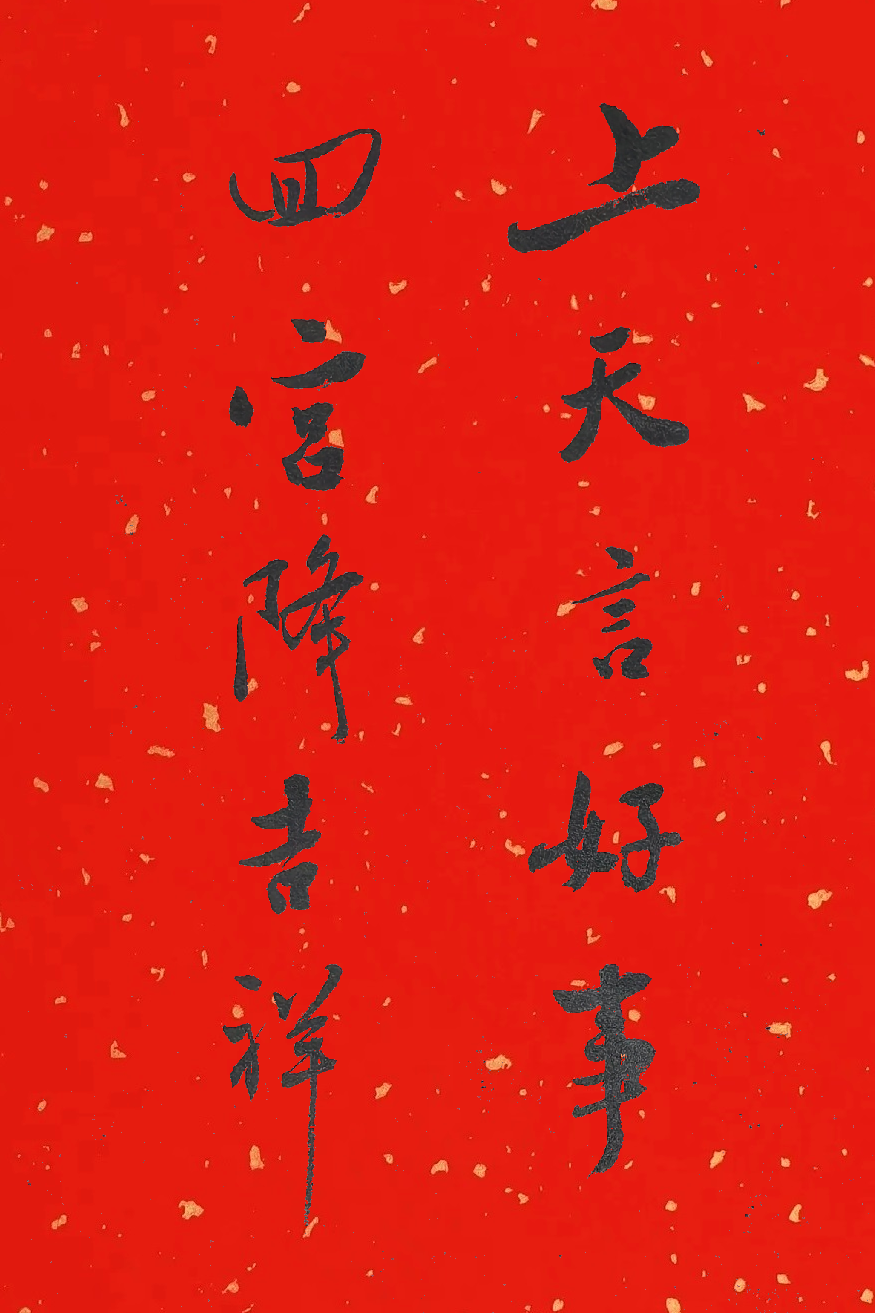 上天言好事
四宫降吉祥